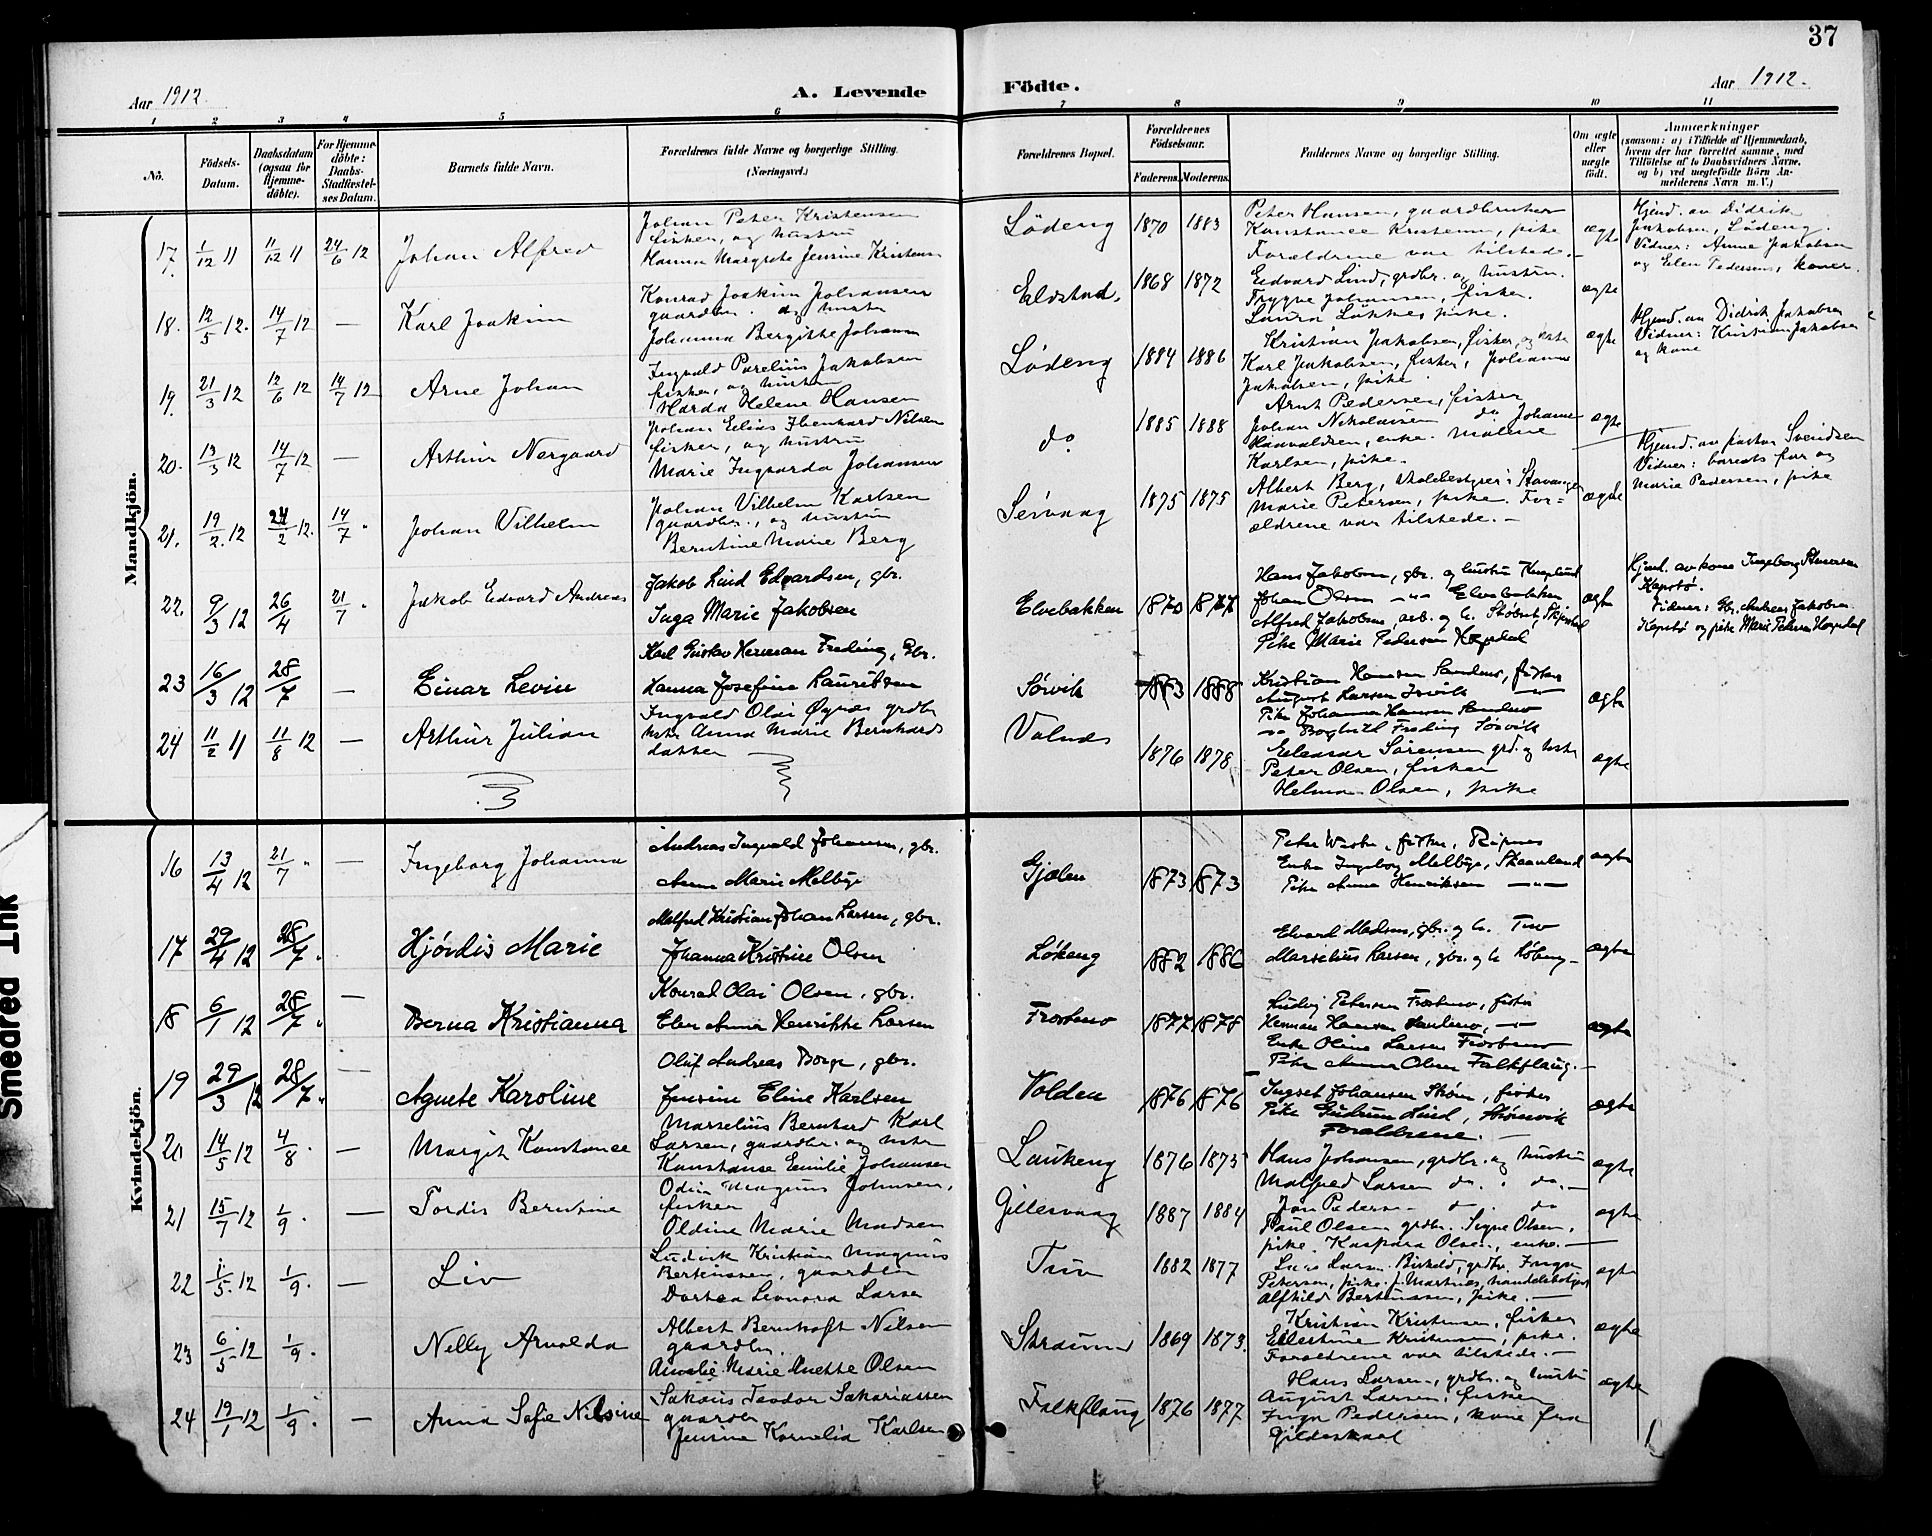 37
Aar 1912.
A. Levende
Födte.
Aar 1912.
1 2 3 4 5 6 7 8 9 10 11
No.
Födsels-Datum.
Daabsdatum (ogsaa for Hjemmedöbte).
For Hjemmedöbte: Daabs-Stadfæstelses Datum.
Barnets fulde Navn.
Forældrenes fulde Navne og borgerlige Stilling. (Næringsvei.)
Forældrenes Bopæl.
Forældrenes Födselsaar.
Faderens. Moderens.
Faddernes Navne og borgerlige Stilling.
Om ægte eller uægte födt.
Anmærkninger
(saasom: a) i Tilfælde af Hjemmedaab, hvem der har forrettet samme, med Tilföielse af to Daabsvidners Navne, og b) ved uægtefödte Börn Anmelderens Navn m. V.)
Mandkjön.
17. 1/12 11 11/12 11 24/6 12 Johan Alfred
Johan Peter Kristensen
fisker, og hustru
Hanna Margrete Jensine Kristensen
Lödeng 1870 1883
Peter Hansen, gaardbruker
Konstance Kristensen, pike
Forældrene var tilstede.
ægte
Hjemd. av Didrik
Jakobsen, Lödeng.
Vidner: Anna Jakobsen
og Elen Pedersen, koner.
18. 12/5 12. 14/7 12 — Karl Joakim
Konrad Joakim Johansen
gaardbr. og hustru
Johanna Bergitte Johansen
Eldstad. 1868 1872
Edvard Lind, grdbr. og hustru.
Trygve Johansen, fisker.
Laura Løkkes pike.
ægte
19. 21/3 12 12/6 12 14/7 12 Arne Johan
Ingvald Parelius Jakobsen
fisker, og hustru
Harda Helene Hansen
Lödeng 1884 1886
Kristian Jakobsen, fisker, og hustru
Karl Jakobsen, fisker, Johanna
Jakobsen, pike
ægte
Hjemd. av Didrik Jakobsen
Vidner: Kristian Jakobsen
og kone
20. 13/3 12 14/7 12 — Arthur Nergaard
Johan Elias Ibenhard Nilsen
fisker, og hustru
Marie Ingvarda Johansen
do. 1885 1888
Arnt Pedersen, fisker
Johan Nikolaisen do Johanne
Haavaldsen, enke. Malene
Karlsen, pike.
ægte
21. 19/2 12 24/2 12. 14/7 " Johan Vilhelm
Johan Vilhelm Karlsen
gaardbr., og hustru
Berntine Marie Berg
Seivaag 1875 1875
Albert Berg, skolebestyrer i Stavanger
Marie Petersen, pike. For=
ældrene var tilstede. —
ægte
Hjemd. av pastor Svendsen
Vidner: barnets far og
Marie Pedersen, pike
22. 9/3 12 26/4 21/7 " Jakob Edvard Andreas
Jakob Lind Edvardsen, gbr.
Inga Marie Jakobsen
Elvebakken 1870 1877
Hans Jakobsen, gbr. og hustru
Johan Olsen —"— Elvebakken
Alfred Jakobsen, arb. og h.
Pike Marie Pedersen Hopdal
ægte
Hjemd. av kone Ingeborg
Kapstø.
Vidner: Gbr. Andreas Jakobsen
Kapstø og pike Marie Pedersen Hopdal
23 16/3 12 28/7 — Einar Levin
Karl Gustav Herman Freding, Gbr.
Hanna Josefine Lauritsen
Sørvik 1883 1888
Kristian Hansen Sandmo, fisker
August Larsen —"—
Pike Johanna Hansen Sandmo
—"— Freding Sørvik
ægte
24 11/2 11 11/8 12 — Arthur Julian
Ingvald Olai Øynes grdbr
hstr. Anna Marie Bernhards
datter
Valnes 1876 1878
Eleasar Sørensen grd. og hustru
Peter Olsen, fisker
Helma Olsen, pike
ægte
Kvindekjön.
16 13/4 12 21/7 " — Ingeborg Johanna
Andreas Ingvald Johansen, gbr.
Anna Marie Melbye
Gjælen 1873 1873
Enke Ingeborg Melbye, Skaanland
Pike Anna Henriksen —"—
ægte
17 29/4 12 28/7 " — Hjördis Marie
Malfred Kristian Johan Larsen, gbr.
Johanna Kristine Olsen
Løkeng 1882 1886
Edvard Madsen, gbr. og h. Tuv
Marselius Larsen, gbr. og h. Løkeng
ægte
18 6/1 12 28/7 " — Berna Kristianna
Konrad Olai Olsen, gbr.
Elen Anna Henrikke Larsen
Frostmo 1877 1878
Ludvig Petersen Frostmo, fisker
Herman Hansen Sandmo, —"—
Enke Oline Larsen Frostmo
Pike Anna Olsen Falkflaug.
ægte
19 29/3 12 28/7 " — Agnete Karoline
Oluf Andreas Borge, gbr.
Jensine Eline Karlsen
Volden 1876 1876
Ingvart Johansen Strøm, fisker
Pike Gudrun Lind, Strømsvik
Forældrene. —
ægte
20 14/5 12 4/8 . — Margit Konstance
Marselius Bernhard Karl
Larsen, gaardbr. og hustru
Konstanse Emilie Johansen
Laukeng 1876 1875
Hans Johansen, grdbr. og hustru
Malfred Larsen do. " do. —
ægte
21 15/7 12 1/9 . — Tordis Berntine
Odin Magnus Johnsen,
fisker
Oldine Marie Madsen
Gillesvaag 1887 1884
Jon Pedersen d . do
Paul Olsen grdbr. Signe Olsen,
pike. Kaspara Olsen, enke. —
ægte
22 1/5 12 1/9 . — Liv
Ludvik Kristian Magnus
Berteussen, gaardbr
Dortea Leonora Larsen
Tuv 1882 1877
Petersen, pike.
Alfhild Berteussen, pike. —
ægte
23 6/5 12 1/9 . — Nelly Arnolda
Albert Bernhoft Nilsen
gaardbr.
Amalie Marie Anette Olsen
Straumen 1869 1873.
Kristian Kristensen, fisker
Ellertine Kristensen, pike.
Forældrene var tilstede. —
ægte
24 19/1 12 1/9 . — Anna Sofie Nilsine
Sakæus Teodor Sakariassen
gaardbr
Jensine Kornelia Karlsen
Falkflaug 1876 1877
Hans Larsen, grdbr. og hustru
August Larsen, fisker
Inga Pedersen, kone fra
Gildeskaal
ægte
Smeared Ink